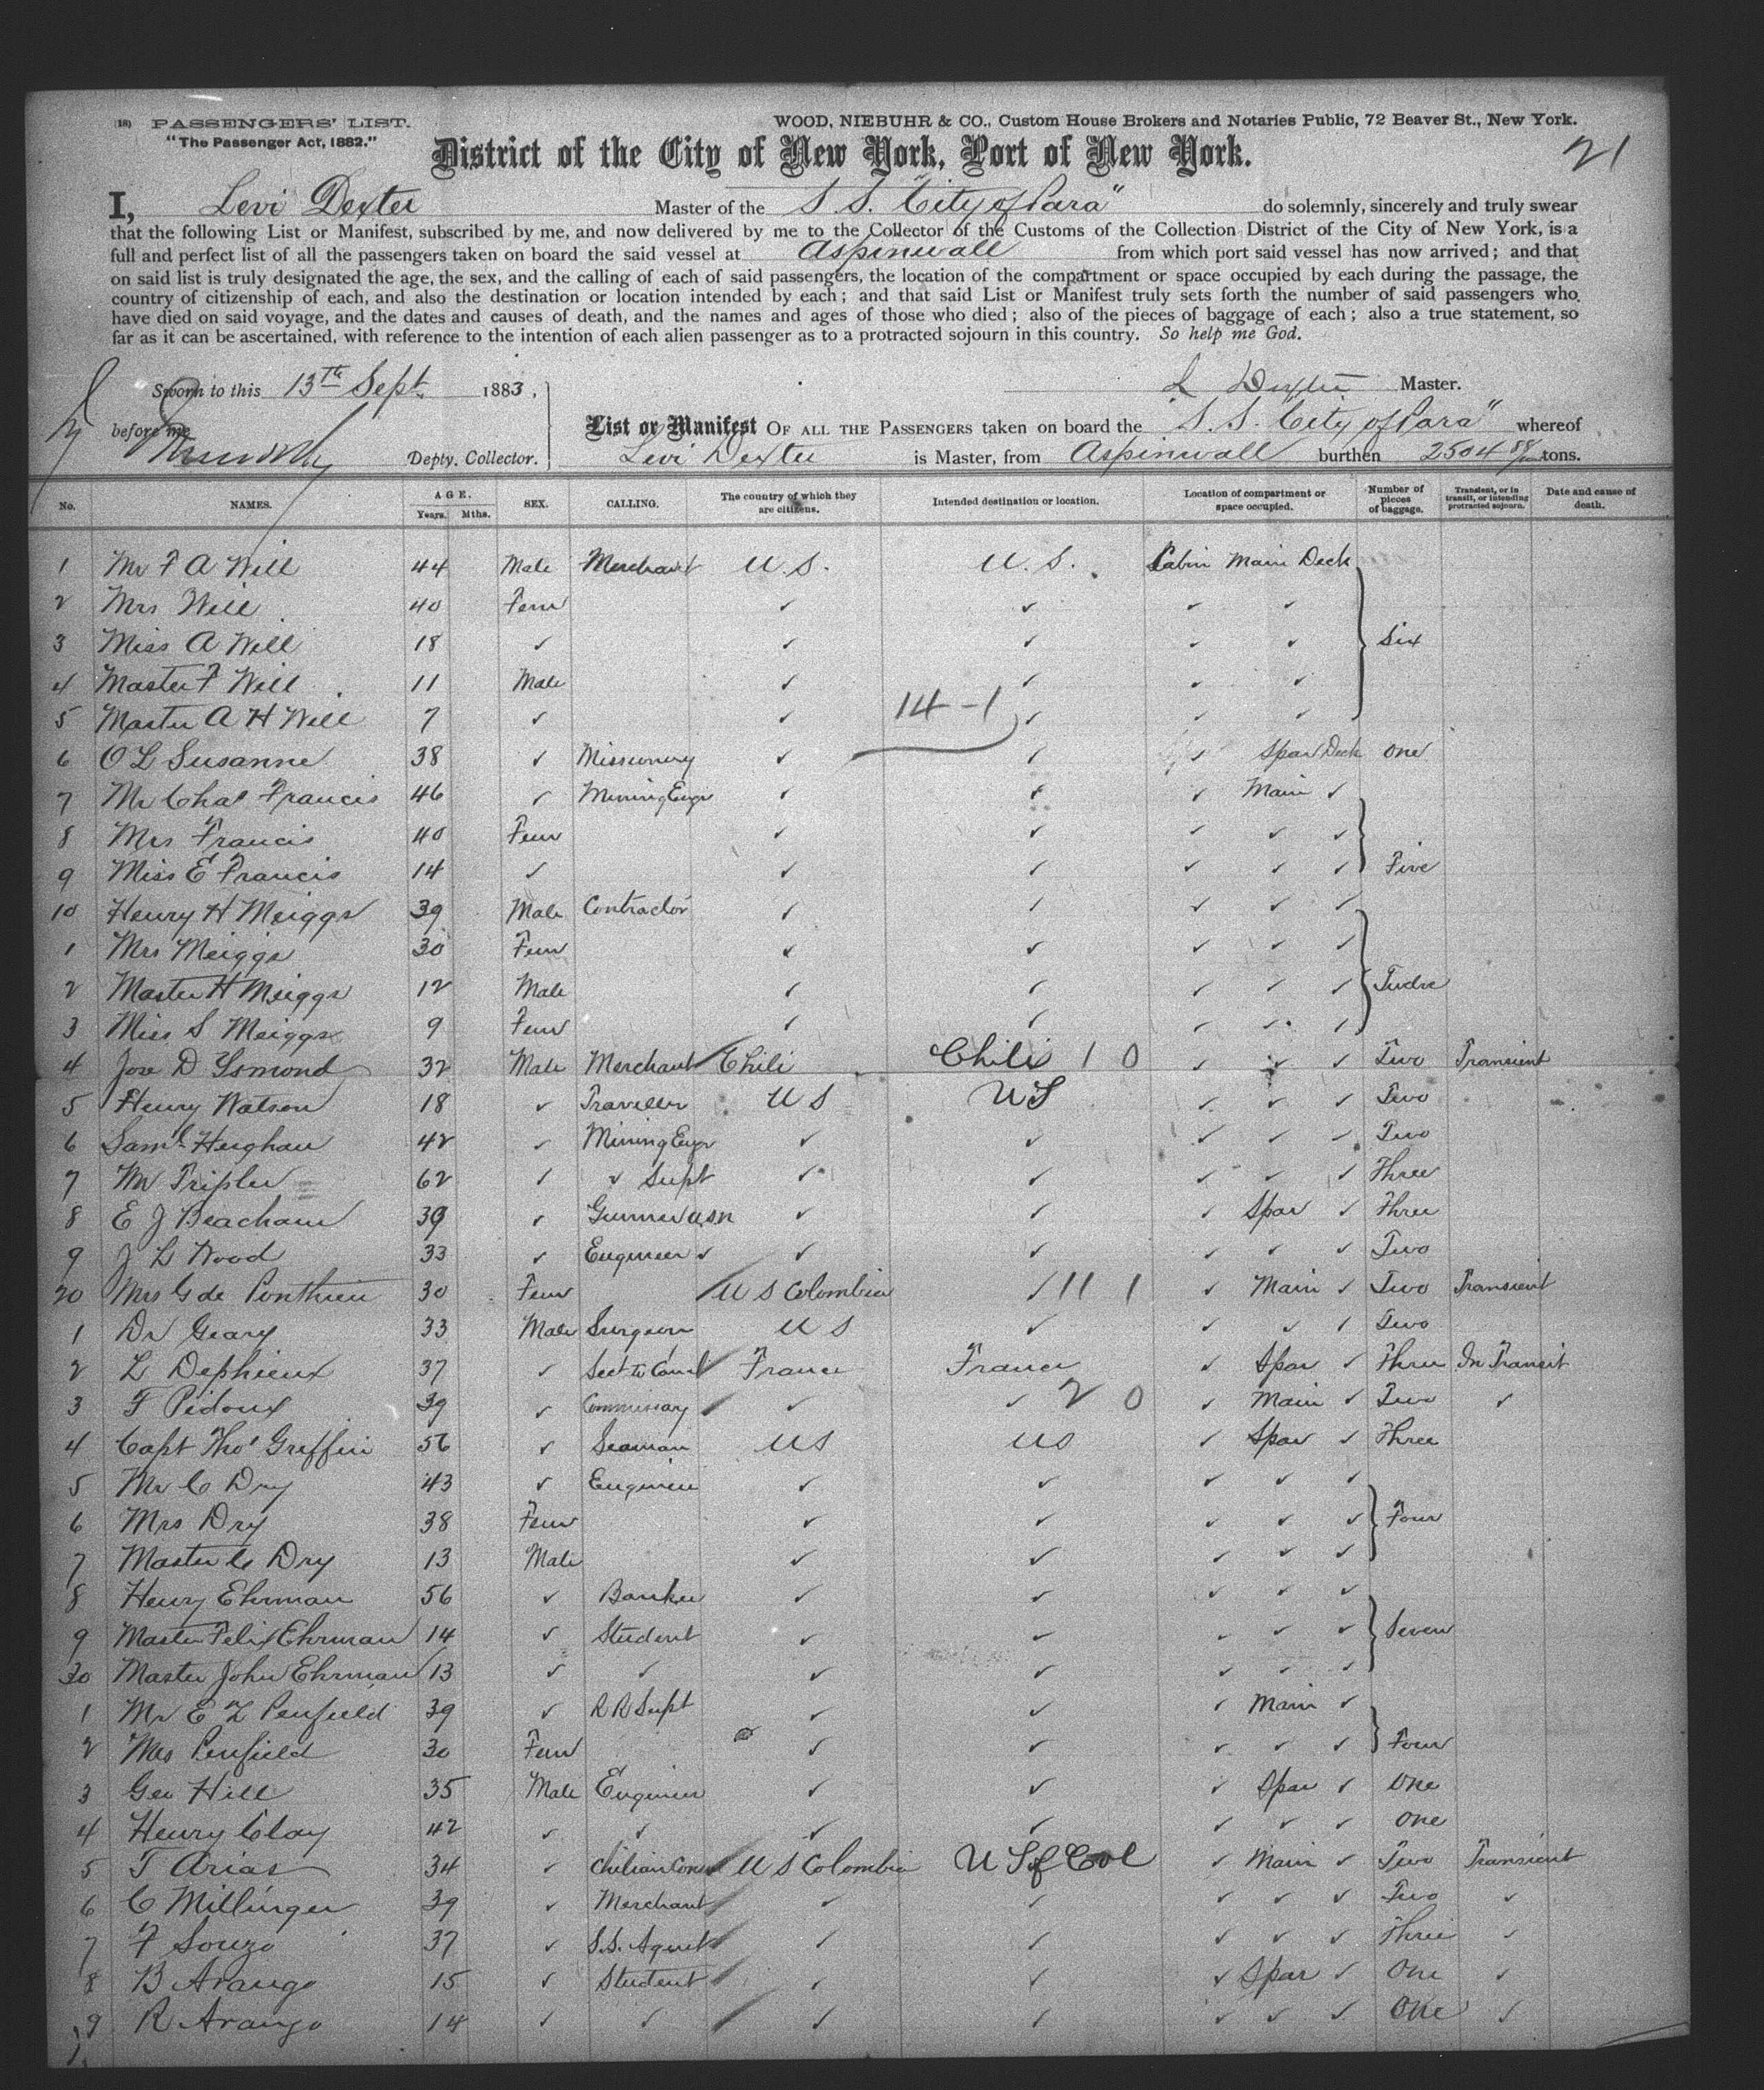 (18) PASSENGERS' LIST.
"The Passenger Act, 1882."
WOOD, NIEBUHR & CO., Custom House Brokers and Notaries Public, 72 Beaver St., New York.
District of the City of New York, Port of New York.
21
I, Levi Dexter Master of the S. S. "City of Para" do solemnly, sincerely and truly swear
that the following List or Manifest, subscribed by me, and now delivered by me to the Collector of the Customs of the Collection District of the City of New York, is a
full and perfect list of all the passengers taken on board the said vessel at Aspinwall from which port said vessel has now arrived; and that
on said list is truly designated the age, the sex, and the calling of each of said passengers, the location of the compartment or space occupied by each during the passage, the
country of citizenship of each, and also the destination or location intended by each; and that said List or Manifest truly sets forth the number of said passengers who
have died on said voyage, and the dates and causes of death, and the names and ages of those who died; also of the pieces of baggage of each; also a true statement, so
far as it can be ascertained, with reference to the intention of each alien passenger as to a protracted sojourn in this country. So help me God.
Sworn to this 13th Sept 1883,
L Dexter Master.
before me
Depty. Collector.
List or Manifest OF ALL THE PASSENGERS taken on board the "S. S. City of Para" whereof
Levi Dexter is Master, from Aspinwall burthen 2504 tons.
No. NAMES. AGE. Years. Mths. SEX. CALLING. The country of which they are citizens. Intended destination or location. Location of compartment or space occupied. Number of pieces of baggage. Transient, or in transit, or intending protracted sojourn. Date and cause of death.
1 Mr F A Will 44 Male Merchant U.S. U.S. Cabin Main Deck
2 Mrs Will 40 Fem ✓ ✓ ✓ ✓
3 Miss A Will 18 ✓ ✓ ✓ ✓ ✓ Six
4 Master F Will 11 Male ✓ ✓ ✓ ✓
5 Master A H Will 7 ✓ ✓ 14-1 ✓ ✓ ✓
6 O L Susanne 38 ✓ Missionery ✓ ✓ ✓ Spar Deck One
7 Mr Chas Francis 46 ✓ Mining Engr ✓ ✓ ✓ Main ✓
8 Mrs Francis 40 Fem ✓ ✓ ✓ ✓ ✓
9 Miss E Francis 14 ✓ ✓ ✓ ✓ ✓ ✓ Five
10 Henry H Meiggs 39 Male Contractor ✓ ✓ ✓ ✓ ✓
1 Mrs Meiggs 30 Fem ✓ ✓ ✓ ✓ ✓
2 Master H Meiggs 12 Male ✓ ✓ ✓ ✓ ✓
3 Miss S Meiggs 9 Fem ✓ ✓ ✓ ✓ ✓
4 Jose D 32 Male Merchant Chili Chili 1 0 ✓ ✓ ✓ Two Transient
5 Henry Watson 18 ✓ Traveller U S US ✓ ✓ ✓ Two
6 Saml 42 ✓ Mining Engr ✓ ✓ ✓ ✓ ✓ Two
7 Mr Tripler 62 ✓ ✓ Supt ✓ ✓ ✓ ✓ ✓ Three
8 E J Beacham 39 ✓ Gunner USN ✓ ✓ ✓ Spar ✓ Three
9 J L Wood 33 ✓ Engineer ✓ ✓ ✓ ✓ ✓ ✓ Two
20 Mrs G de Ponthieu 30 Fem U S Colombia ✓ 11 1 ✓ Main ✓ Two Transient
1 Dr Geary 33 Male Surgeon U S ✓ ✓ ✓ ✓ Two
2 L Dephieux 37 ✓ Sect to France France ✓ Spar ✓ Three In Transit
3 F Pidoux 39 ✓ Commissary ✓ ✓ 2 0 ✓ Main ✓ Two ✓
4 Capt Thos Griffin 56 ✓ Seaman US US ✓ Spar ✓ Three
5 Mr C Dry 43 ✓ Engineer ✓ ✓ ✓ ✓ ✓
6 Mrs Dry 38 Fem ✓ ✓ ✓ ✓ ✓ Four
7 Master C Dry 13 Male ✓ ✓ ✓ ✓ ✓
8 Henry Ehrman 56 ✓ Banker ✓ ✓ ✓ ✓ ✓
9 Master Felix Ehrman 14 ✓ Student ✓ ✓ ✓ ✓ ✓ Seven
30 Master John Ehrman 13 ✓ ✓ ✓ ✓ ✓ ✓ ✓
1 Mr E Z Penfield 39 ✓ R R Supt ✓ ✓ ✓ Main ✓
2 Mrs Penfield 30 Fem ✓ ✓ ✓ ✓ ✓ Four
3 Geo Hill 35 Male Engineer ✓ ✓ ✓ Spar ✓ One
4 Henry Clay 42 ✓ ✓ ✓ ✓ ✓ ✓ ✓ One
5 T Arias 34 ✓ Chilian U S Colombia U S of Col ✓ Main ✓ Two Transient
6 C Millinger 39 ✓ Merchant ✓ ✓ ✓ ✓ ✓ Two ✓
7 F Souza 37 ✓ S.S. Agent ✓ ✓ ✓ ✓ ✓ Three ✓
8 B Arango 15 ✓ Student ✓ ✓ ✓ Spar ✓ One ✓
9 R Arango 14 ✓ ✓ ✓ ✓ ✓ ✓ ✓ One ✓